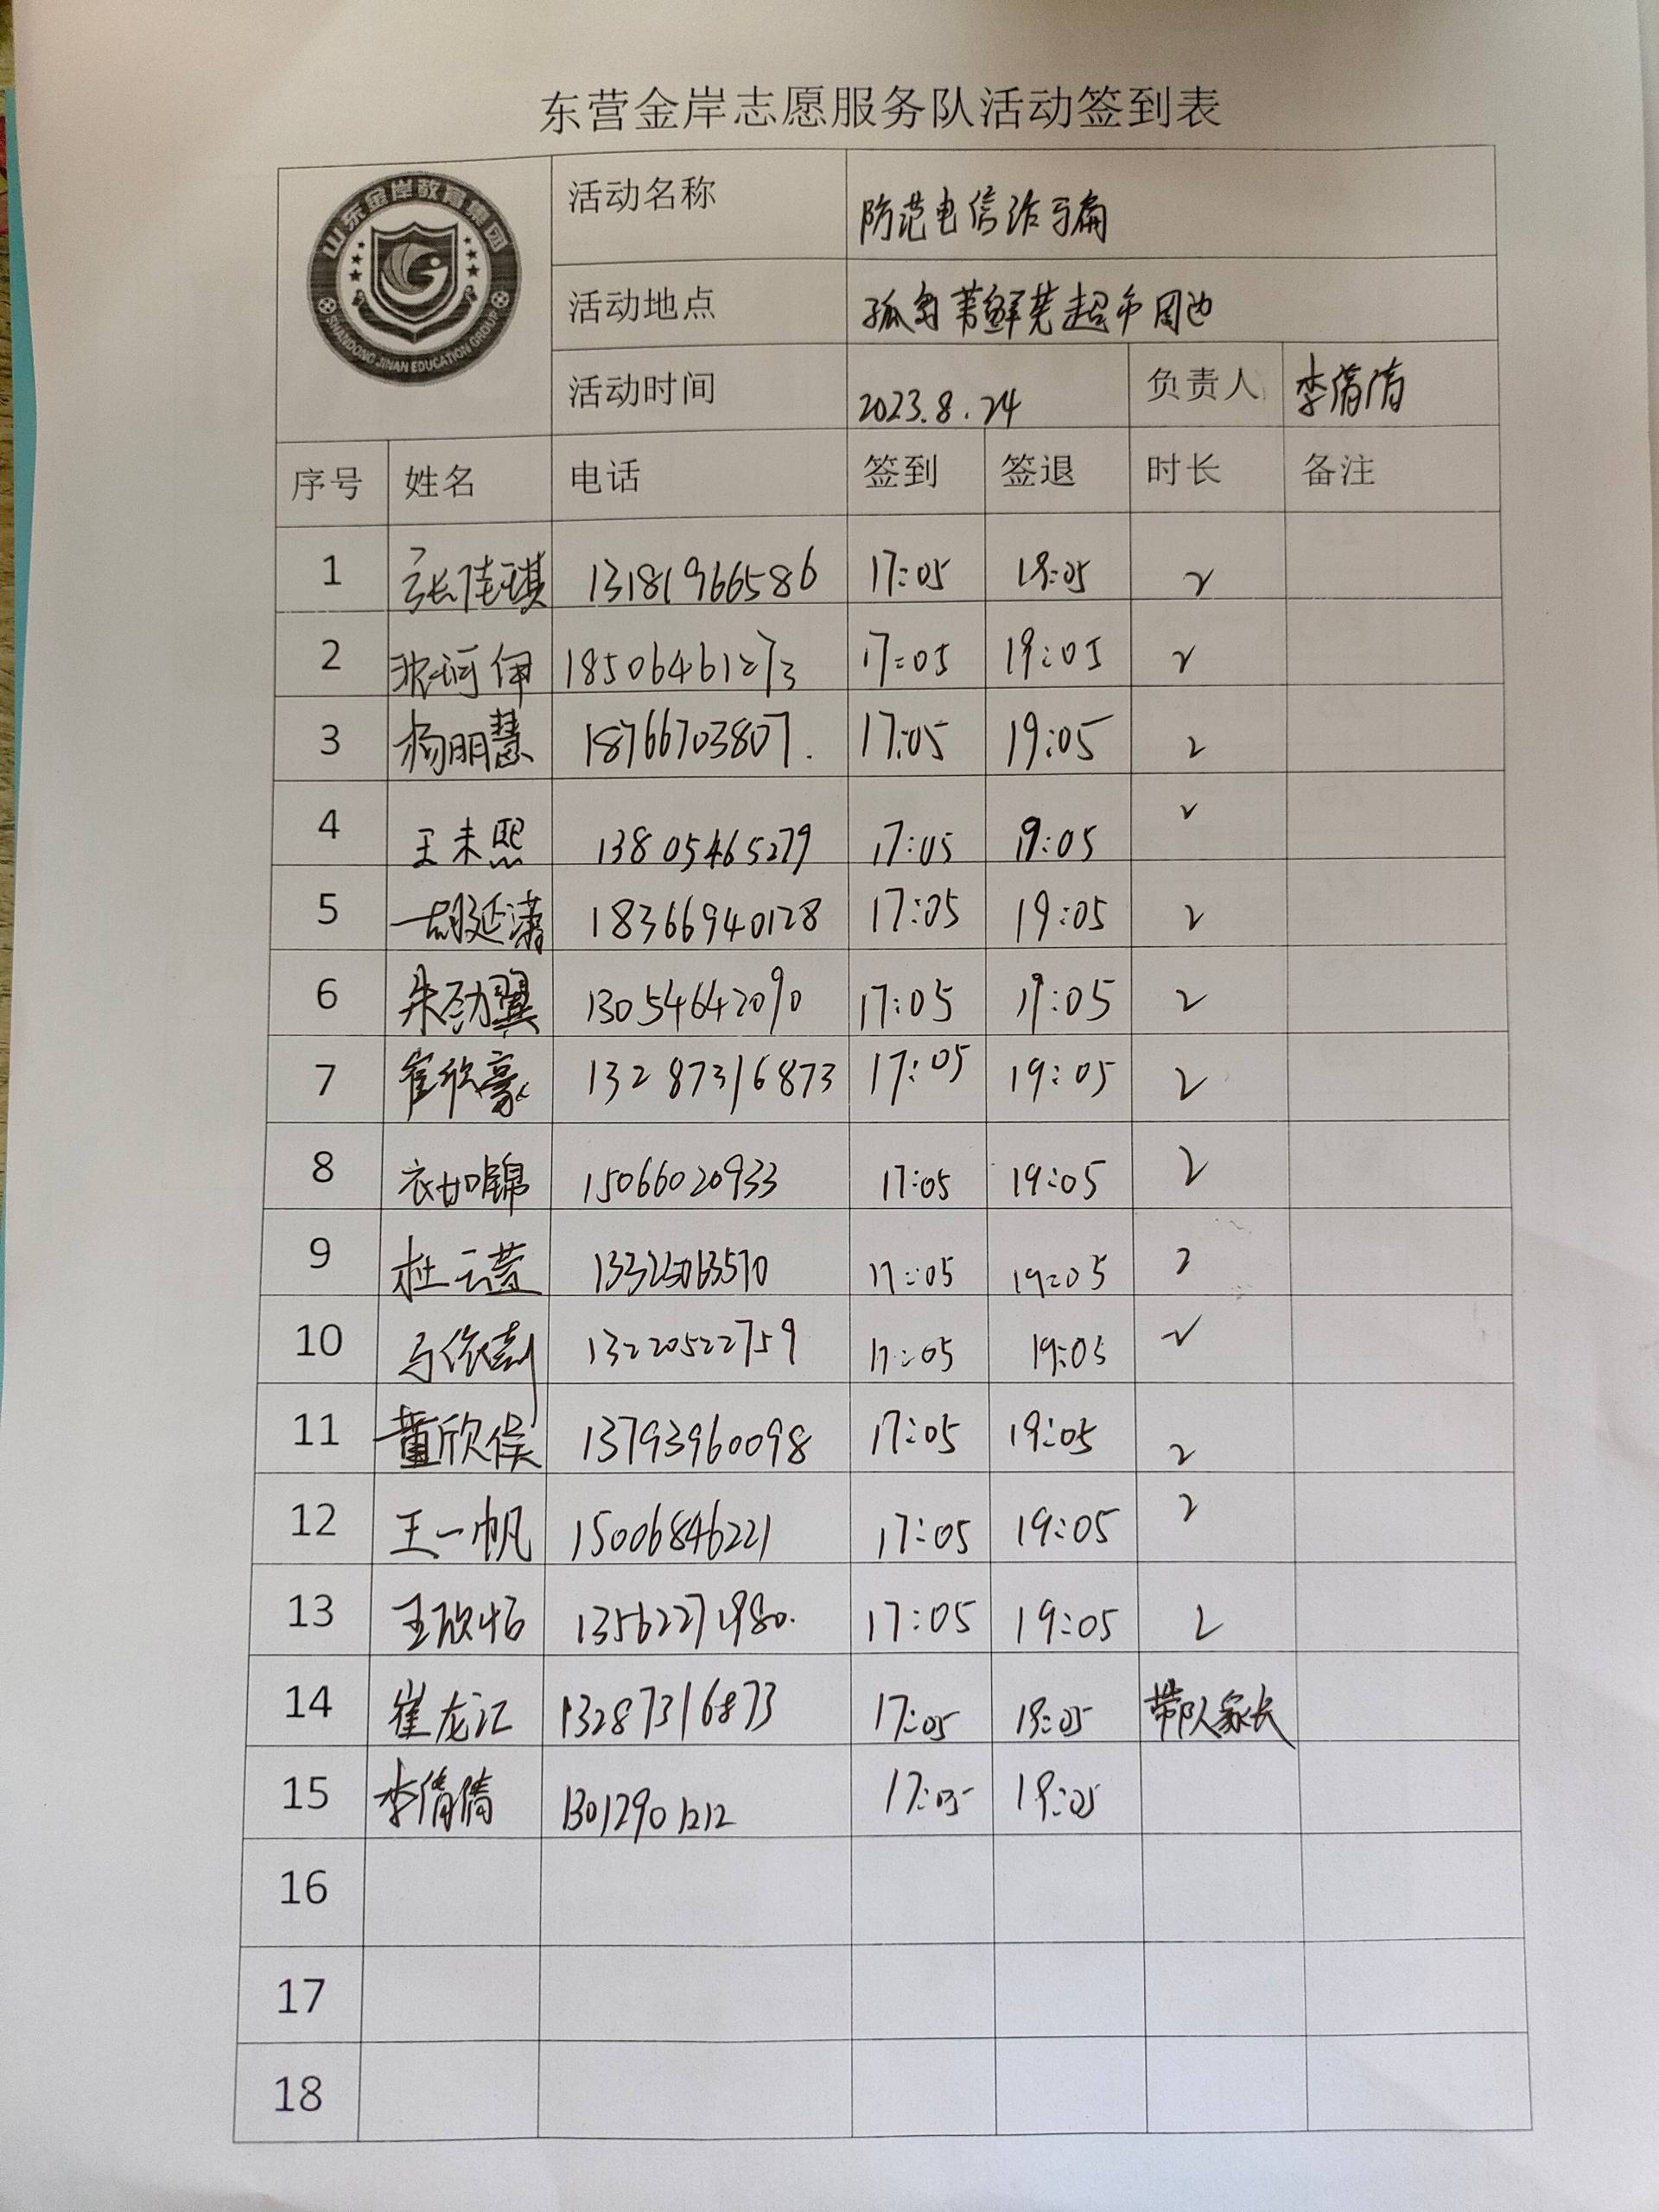 东营金岸志愿服务队活动签到表
山东金岸教育集团
SHANDONG JINAN EDUCATION GROUP
活动名称 防范电信诈骗
活动地点 孤岛 超市周边
活动时间 2023.8.24 负责人 李倩倩
序号 姓名 电话 签到 签退 时长 备注
1 张佳琪 13181966586 17:05 19:05 2
2 伊 18506461273 17:05 19:05 2
3 杨明慧 18766703807. 17:05 19:05 2
4 王未熙 13805465279 17:05 19:05 2
5 胡延潇 18366940128 17:05 19:05 2
6 朱劲翼 13054642090 17:05 19:05 2
7 崔欣豪 13287316873 17:05 19:05 2
8 衣如锦 15066020933 17:05 19:05 2
9 杜云萱 17:05 19:05 2
10 马依 13220522759 17:05 19:05 2
11 董欣俟 13793960098 17:05 19:05 2
12 王一帆 15006846221 17:05 19:05 2
13 王欣 17:05 19:05 2
14 崔龙江 13287316873 17:05 19:05 带队家长
15 李倩倩 13012901212 17:05 19:05
16
17
18